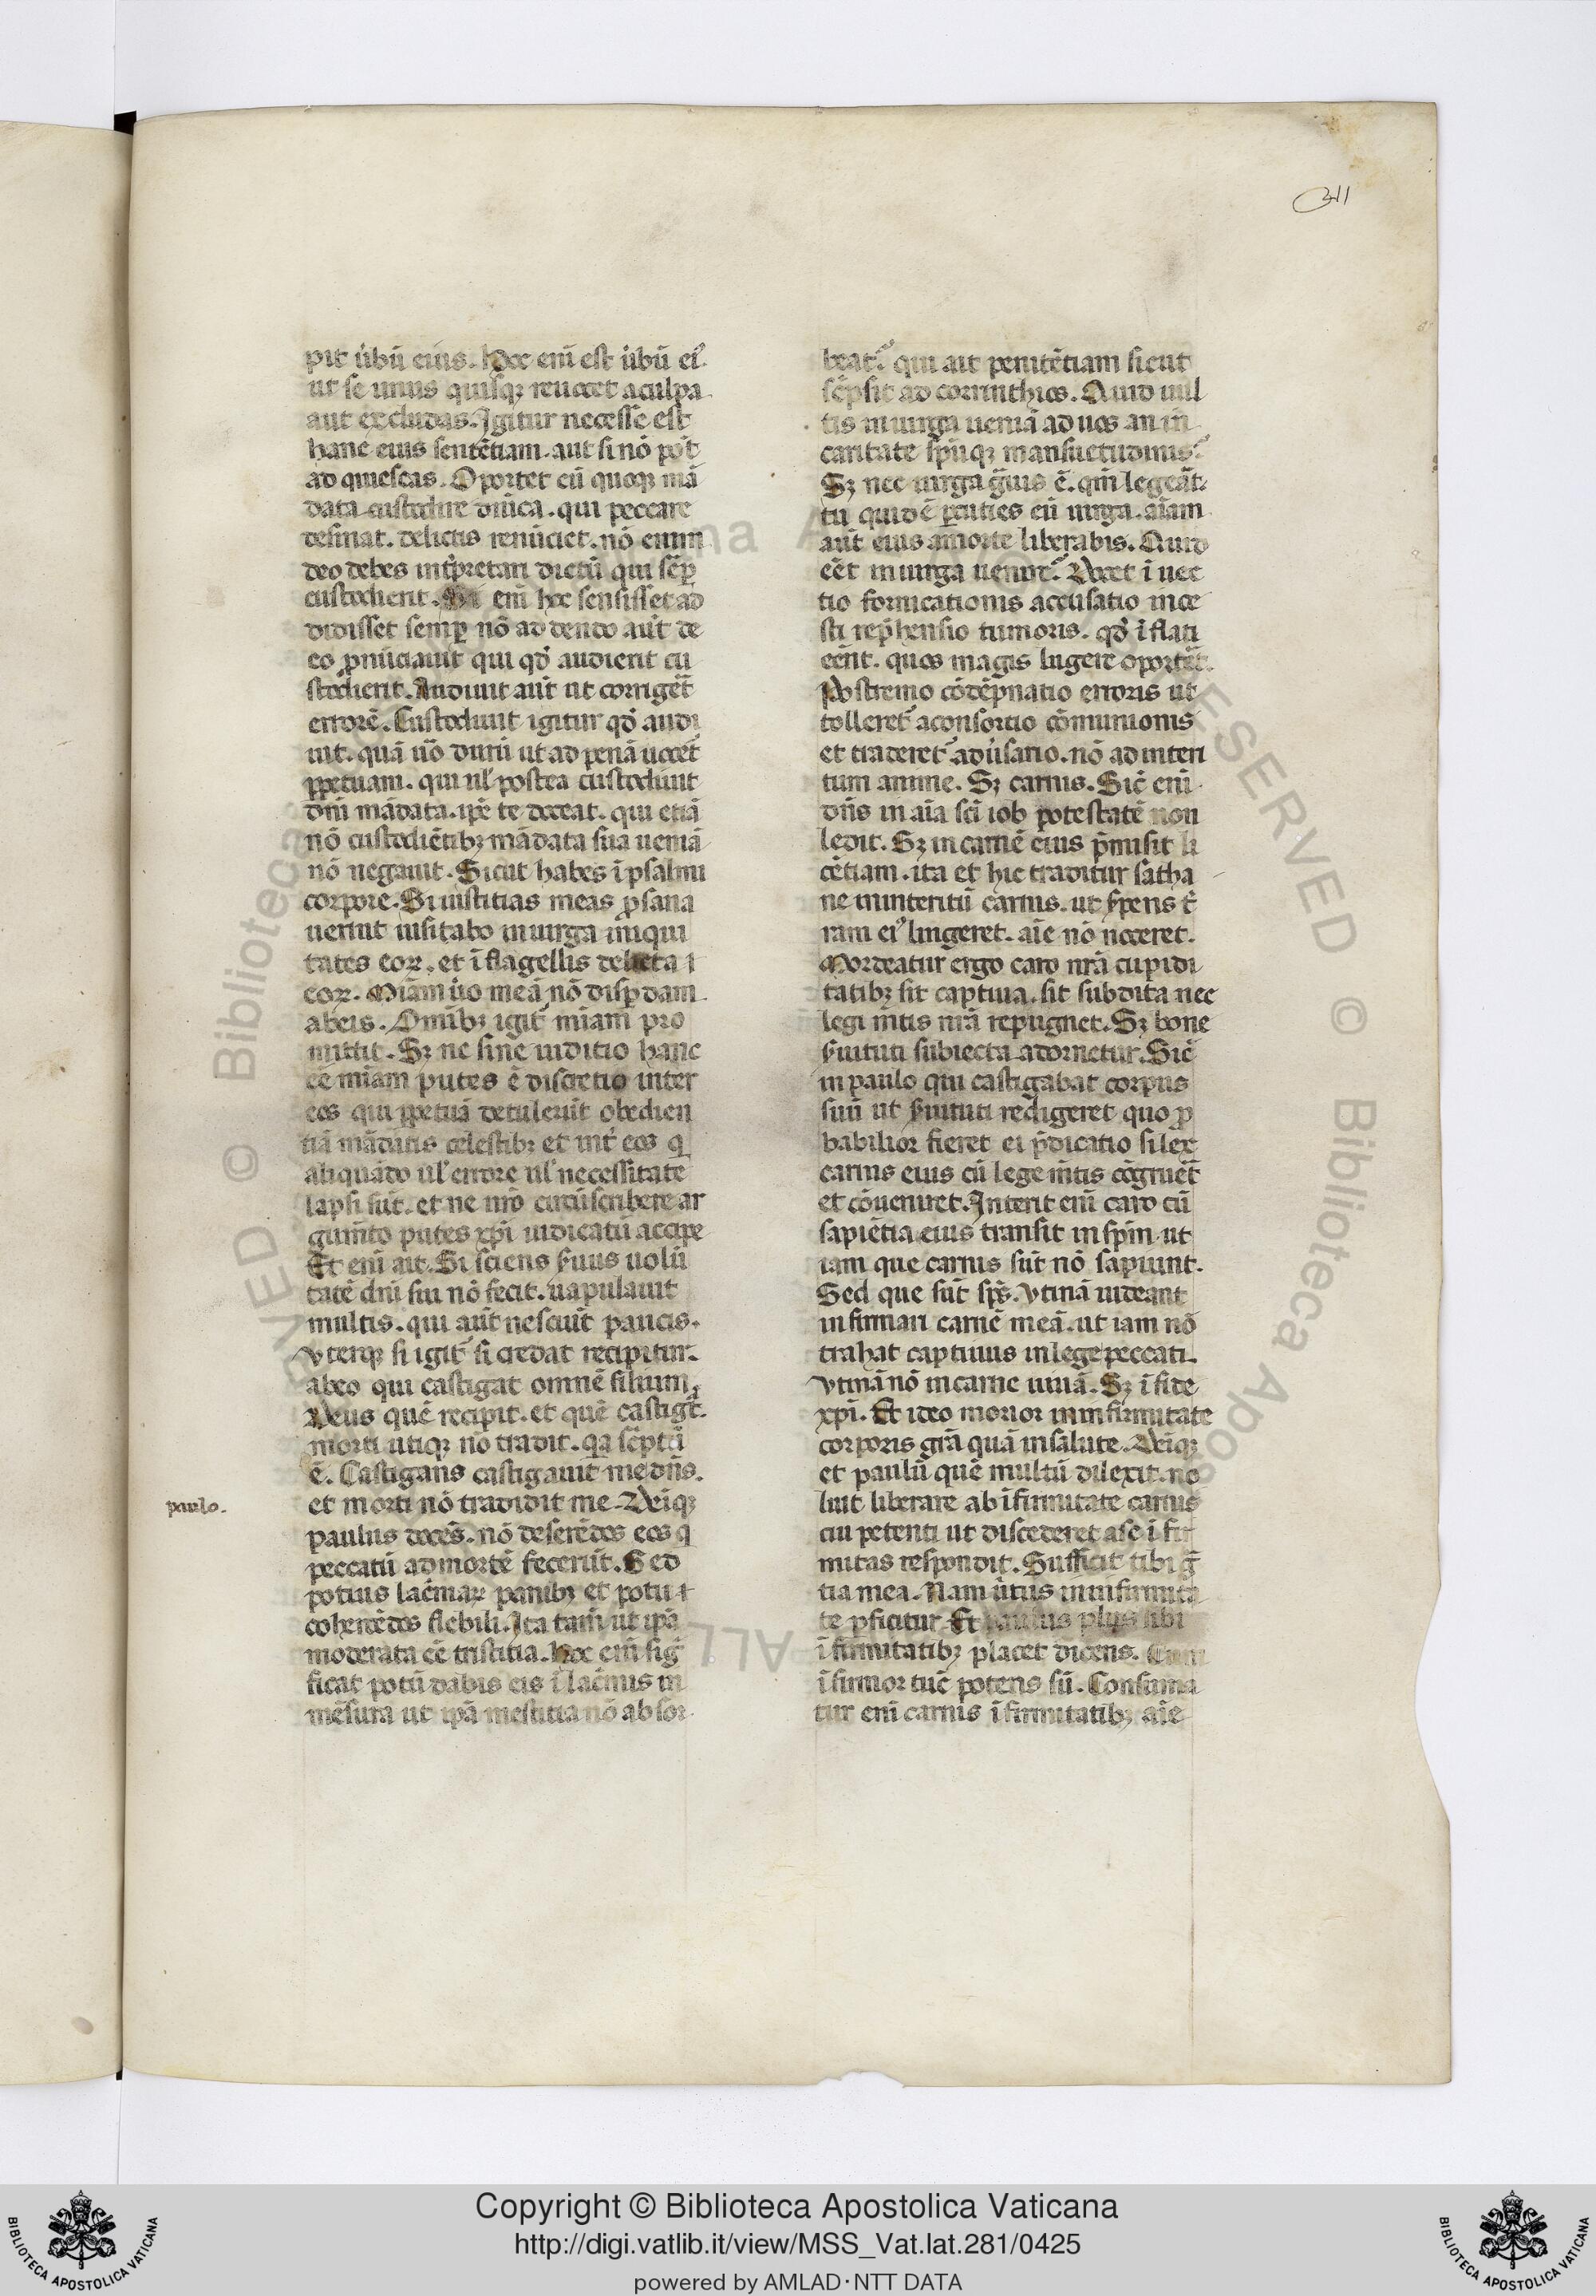 211
pit ủbũ eius. Hoc enĩ est ủbũ ei᷒.
ut se unus quisqꝫ reuocet a culpa
aut excludas. Igitur necesse est
hanc eius sentẽtiam. aut si nõ pot̃
ad quiescas. Oportet cũ quoqꝫ mã
data custodire diĩca. qui peccare
desinat. delictis renũciet. nõ enim
deo debes int̃pretari dictũ qui sẽꝑ
custodierit. enĩ hoc sensisset ad
didisset semꝑ nõ addendo aũt de
eo ꝓnũciauit qui qđ audierit cu
stodierit. Audiuit aũt ut corriget̃
errorẽ. Custodiuit igitur qđ audi
uit. quã ủo durũ ut ad penã uocet̃
ꝑpetuam. qui ul̃ postea custodiuit
dñi mãdata. ip̃e te doceat. qui etiã
nõ custodiẽtibꝫ mãdata sua ueniã
nõ negauit. Sicut habes ĩ psalmi
corpore. Si iustitias meas ꝓfana
uerint uisitabo in uirga iniqui
tates eoꝝ. et ĩ flagellis delicta
eoꝝ. Miam ủo meã nõ disꝑdam
ab eis. Omibꝫ igit᷒ miam pro
mittit. Sꝫ ne sine iuditio hanc
eẽ miam putes ẽ discretio inter
eos qui ꝑpetuã detulerũt obedien
tiã mãdatis celestibꝫ et int̃ eos q
aliquãdo ul̃ errore ul̃ necessitate
lapsi sũt. et ne nr̃o circũscribere ar
gum̃to putes xp̃i iudicatũ accipe
Et enĩ ait. Si sciens s̃uus uolũ
tatẽ dñi sui nõ fecit. uapulauit
multis. qui aũt nesciuit paucis.
Vterqꝫ si igit᷒ si credat recipitur.
ab eo qui castigat omnẽ filium
Deus quẽ recipit. et quẽ castigat̃.
morti utiqꝫ nõ tradit. qa sc̃ptũ
ẽ. Castigans castigauit me dñs.
et morti nõ tradidit me. Deĩqꝫ
paulo.
paulus doces̃. nõ deserẽdos eos q
peccatũ ad mortẽ fecerũt. Sed
potius lac̃maꝝ panibꝫ et potu
cohercẽdos flebili. Ita tam̃ ut ip̃a
moderata eẽ tristitia. Hoc enĩ sig̃
ficat potũ dabis eis ĩ lac̃mis in
mẽsura ut ip̃a mestitia nõ absor
beat᷒. qui ait penitẽtiam sicut
sc̃psit ad corinthios. Quid uul
tis in uirga ueniã ad uos an in
caritate sp̃uqꝫ mansuetudinis᷒
Sꝫ nec uirga g̃uis ẽ. qm̃ legeãt
tu quidẽ ꝑcuties eũ uirga. aĩam
aũt eius a morte liberabis. Quid
eẽt in uirga uenire᷒. Docet ĩ uec
tio fornicationis accusatio ince
sti rep̃hensio tumoris. qđ ĩflati
eẽnt. quos magis lugere oportẽt
Postremo cõdẽpnatio erroris ut
tolleret᷒ a consortio cõmunionis
et traderet᷒ adủsario. nõ ad interi
tum anime. Sꝫ carnis. Sic̃ enĩ
dñs in aĩa sc̃i iob potestatẽ non
dedit. Sꝫ in carnẽ eius p̃misit li
cẽtiam. ita et hic traditur satha
ne in interitũ carnis. ut s̃pens t̃
ram ei᷒ lingeret. aĩe nõ noceret.
Mordeatur ergo caro nr̃a cupidi
tatibꝫ sit captiua. sit subdita nec
legi m̃tis nr̃a repugnet. Sꝫ bone
s̃uituti subiecta adornetur. Sic̃
in paulo qui castigabat corpus
suũ ut s̃uituti redigeret quo ꝓ
babilior fieret ei p̃dicatio si lex
carnis eius cũ lege m̃tis cõgruẽt
et cõueniret. Interit enĩ caro cũ
sapiẽtia eius transit in sp̃m ut
iam que carnis sũt nõ sapiunt.
Sed que sũt sp̃s. Vtinã uideant
infirmari carnẽ meã. ut iam nõ
trahat captiuus in lege peccati.
Vtinã nõ in carne uiuã. Sꝫ ĩ fide
xp̃i. Et ideo morior in infirmitate
corporis gr̃a quã in salute. Deĩqꝫ
et paulũ quẽ multũ dilexit. no
luit liberare ab ĩfirmitate carnis
cui petenti ut discederet a se ĩ fir
mitas respondit. Sufficit tibi g̃
tia mea. Nam ủtus in infirmita
te ꝑficitur. Et paulus plus sibi
ĩ firmitatibꝫ placet dicens. Cum
ĩfirmor tũc potens sũ. Consuma
tur enĩ carnis ĩfirmitatibꝫ aĩe
Copyright © Biblioteca Apostolica Vaticana
http://digi.vatlib.it/view/MSS_Vat.lat.281/0425
powered by AMLAD·NTT DATA
BIBLIOTECA APOSTOLICA VATICANA
BIBLIOTECA APOSTOLICA VATICANA